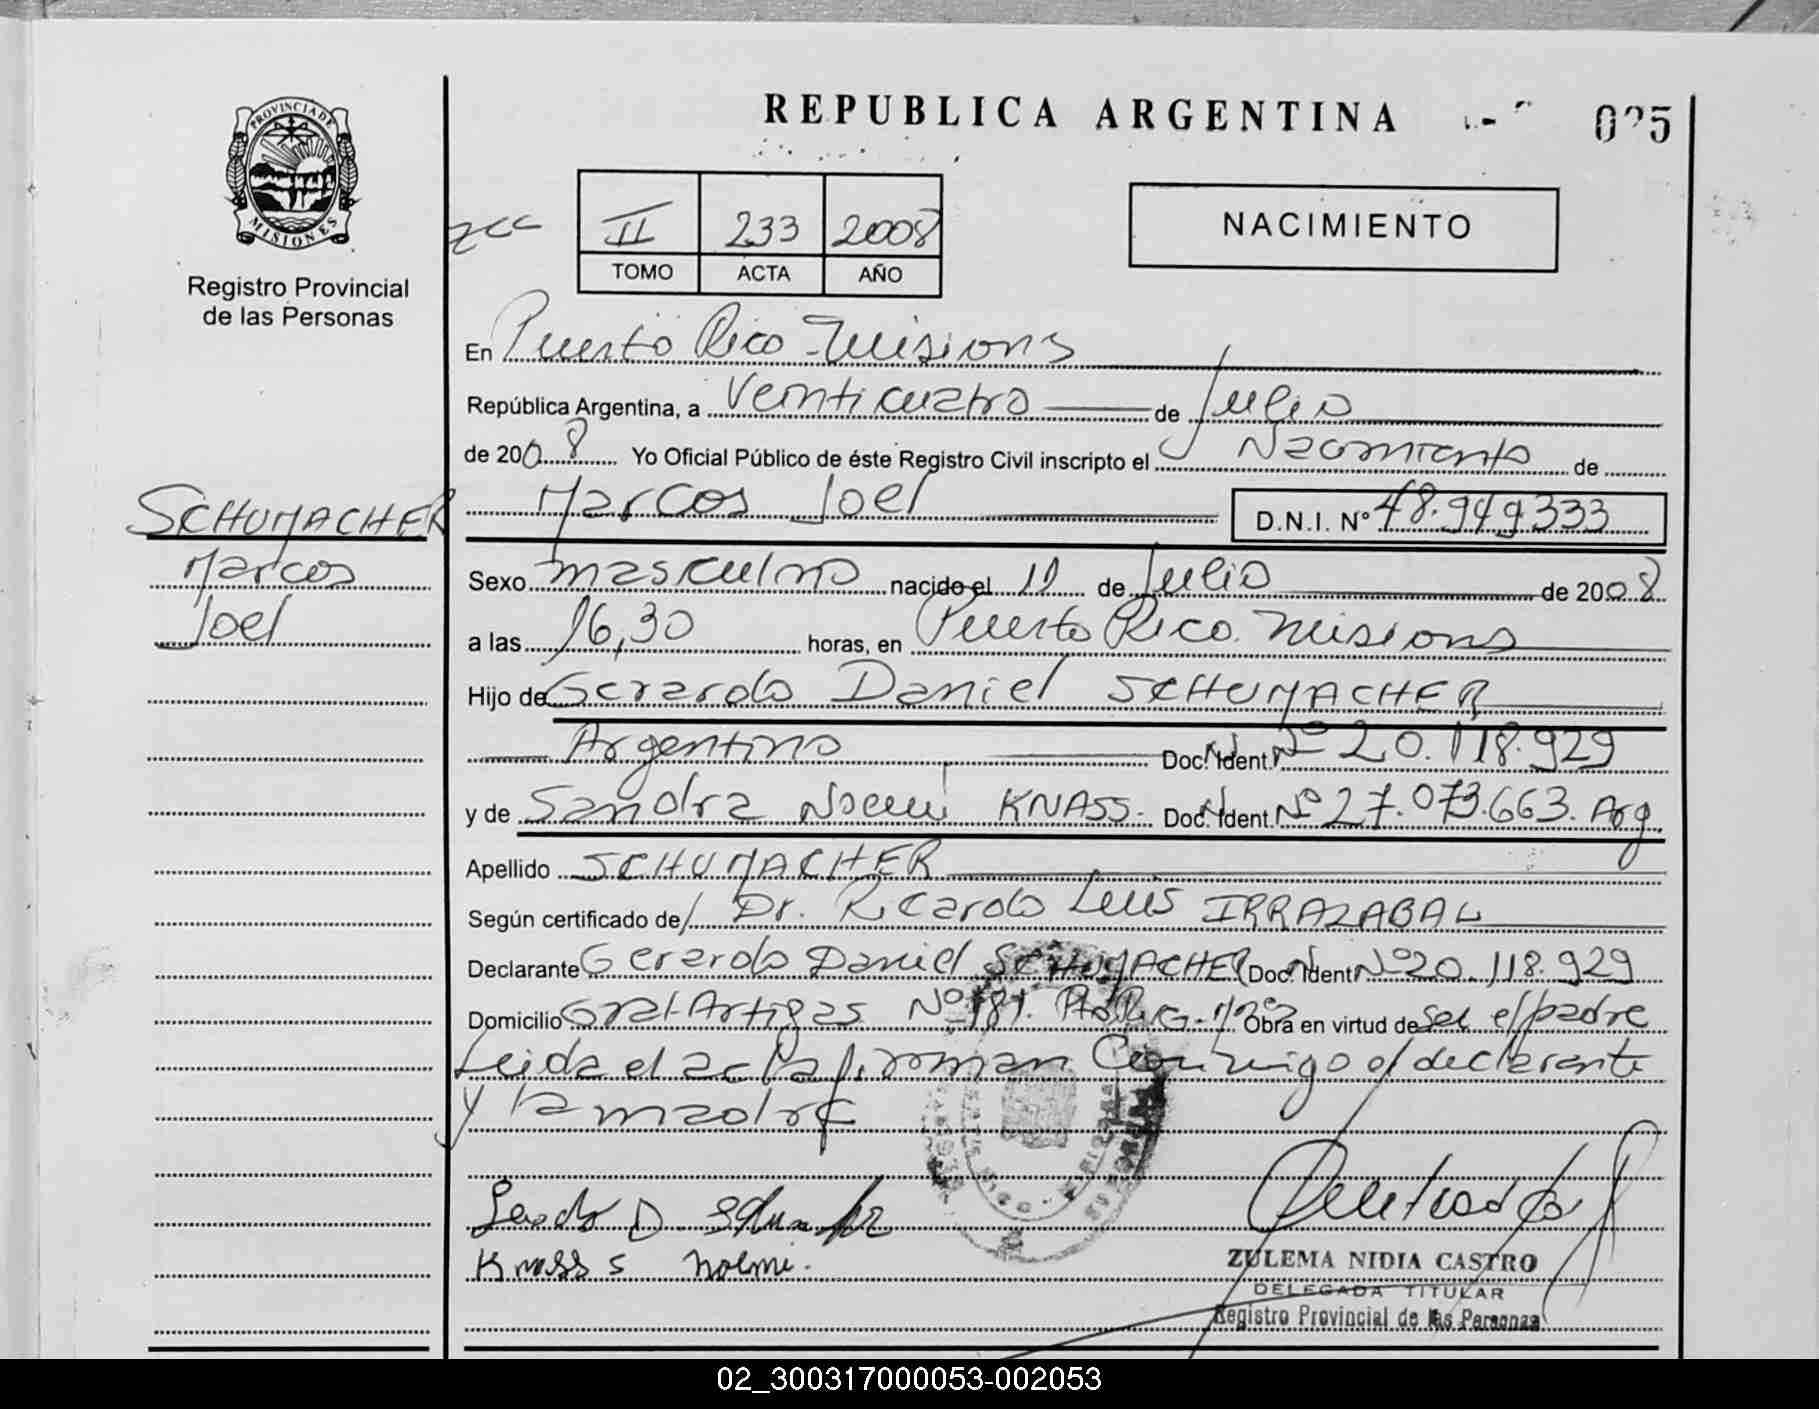 REPUBLICA ARGENTINA
PROVINCIA DE MISIONES
Registro Provincial
de las Personas
II 233 2008
TOMO ACTA AÑO
NACIMIENTO
En Puerto Rico - Misiones
República Argentina, a Veinticuatro de Julio
de 2008 Yo Oficial Público de éste Registro Civil inscripto el Nacimiento de
SCHUMACHER
Marcos
Joel
Marcos Joel D.N.I. Nº 48.949.333
Sexo masculino nacido el 11 de Julio de 2008
a las 16,30 horas, en Puerto Rico. Misiones
Hijo de Gerardo Daniel SCHUMACHER
Argentino Doc. Ident. Nº 20.118.929
y de Sandra Noemi KNASS. Doc. Ident. Nº 27.073.663. Arg
Apellido SCHUMACHER
Según certificado de/ Dr. Ricardo Luis IRRAZABAL
Declarante Gerardo Daniel SCHUMACHER Doc. Ident Nº 20.118.929
Domicilio Gral. Artigas Nº 181. Obra en virtud de ser el padre
Leida el acta firman Conmigo el declarante
y la madre
Knass S Noemi.
ZULEMA NIDIA CASTRO
DELEGADA TITULAR
Registro Provincial de las Personas
02_300317000053-002053